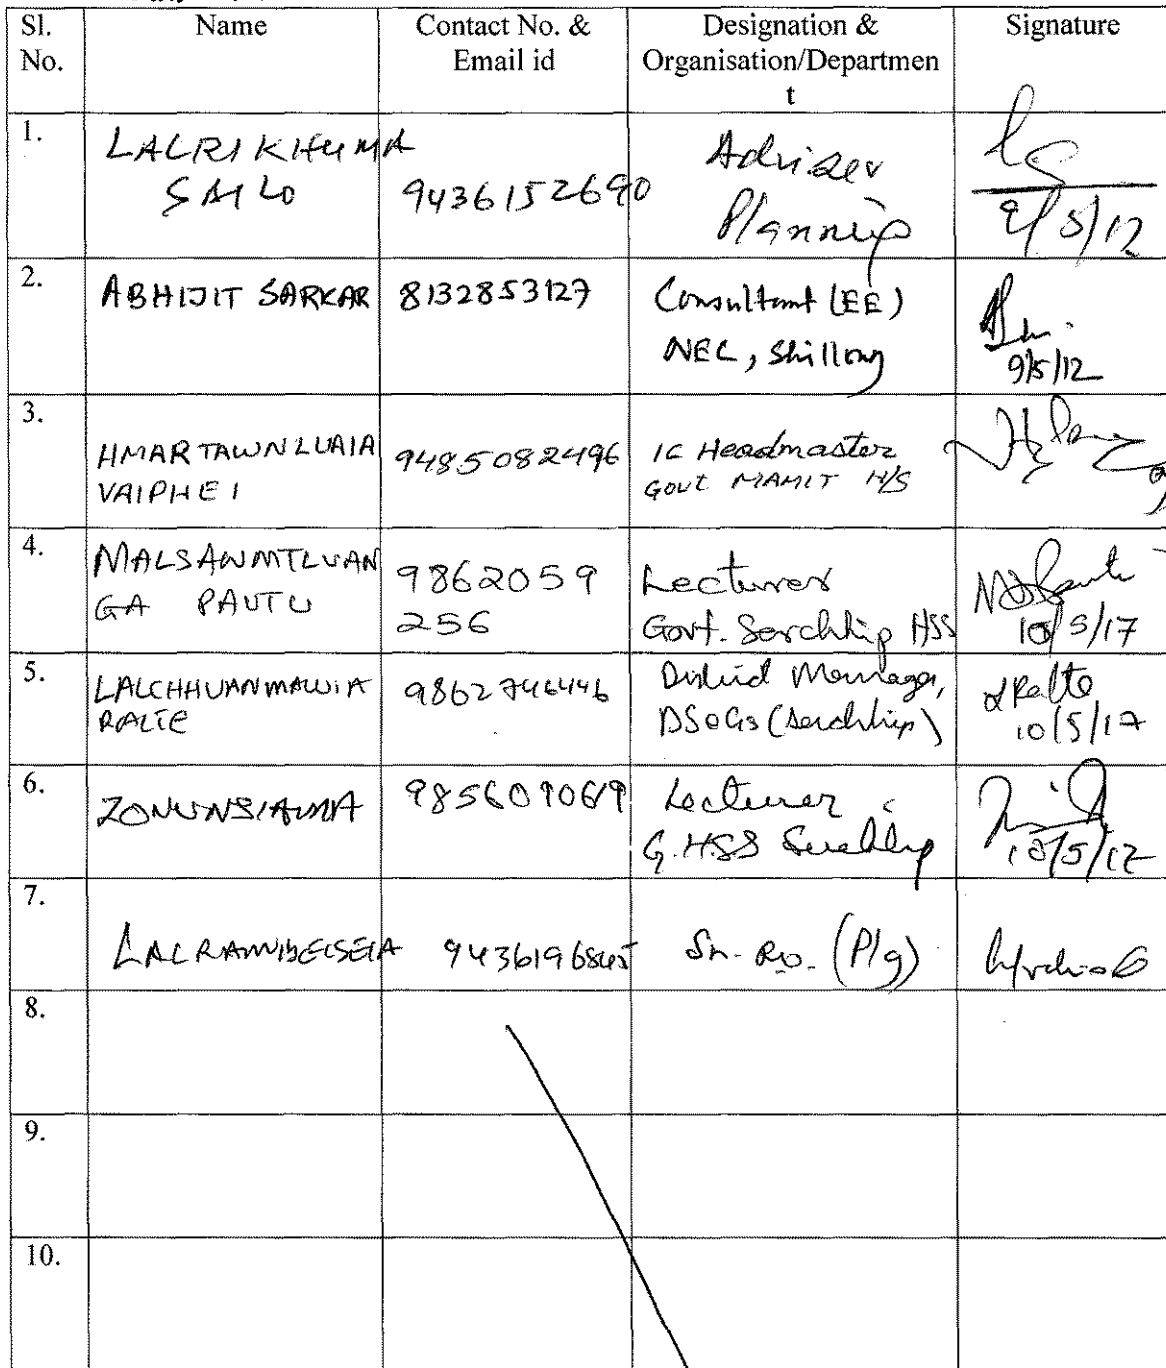 Sl. No. Name Contact No. & Email id Designation & Organisation/Departmen t Signature
1. LALRIKHUMA SAILO 9436152690 Adviser Planning 9/5/12
2. ABHIJIT SARKAR 8132853127 Consultant (EE) NEC, Shillong 9/5/12
3. HMARTAWNLUAIA VAIPHEI 9485082496 IC Headmaster GOVT MAMIT H/S
4. MALSAWMTLUAN GA PAUTU 9862059 256 Lecturer Govt. Serchhip HSS 10/5/17
5. LALCHHUANMAWIA RALTE 9862746446 District Manager, DSeGs (Serchhip) Ralte 10/5/17
6. ZONUNSIAMA Lecturer G.HSS Serchhip 10/5/12
7. 9436196845 Sr. R.O. (Plg)
8.
9.
10.